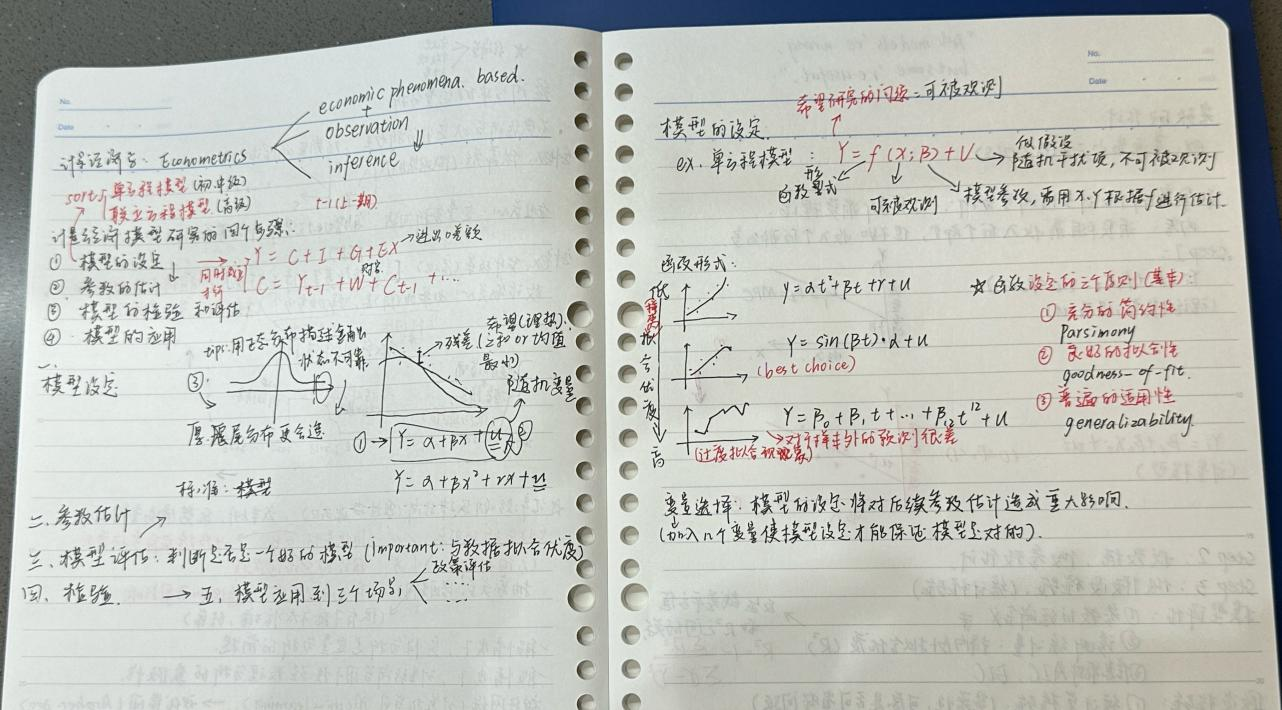 No.
Date
计量经济学: Econometrics
economic phenomena. based.
+
observation
inference
sorts
单方程模型 (初.中级)
联立方程模型 (高级)
t-1 (上一期)
计量经济学模型研究的四个步骤:
① 模型的设定
② 参数的估计
③ 模型的检验 和评估
④ 模型的应用
Y = C + I + G + EX → 进出口差额
C = Y t-1 + W + C t-1 + ...
tips: 用正态分布描述金融
状态不可靠
③
厚尾分布更合适
一.
模型设定
希望(理想).
残差 (之和 or 均值
最小)
随机变量
① → Y = α + βx + u
Y = α + βx² + rx + u
标准: 模型
二. 参数估计
三. 模型评估: 判断是否是一个好的模型 (important: 与数据拟合优度)
四. 检验. → 五. 模型应用到三个场景
政策评估
....
No.
Date
希望研究的问题 = 可被观测
模型的设定.
ex. 单方程模型 : Y = f (X; β) + U
做假设
随机干扰项, 不可被观测
函数形式
可被观测
模型参数, 需用 X. Y 根据 f 进行估计.
函数形式:
低
拟合优度
高
Y = αt² + βt + r + u
Y = sin (βt) · α + u
(best choice)
Y = β₀ + β₁ t + ... + β₁₂ t¹² + u
对于样本外的预测很差
(过度拟合现象)
☆ 函数设定的三个原则 (基本)
① 充分的简约性
parsimony
② 良好的拟合性
goodness-of-fit.
③ 普遍的适用性
generalizability.
变量选择: 模型的设定将对后续参数估计造成重大影响.
(加入几个变量使模型设定才能保证模型是对的).